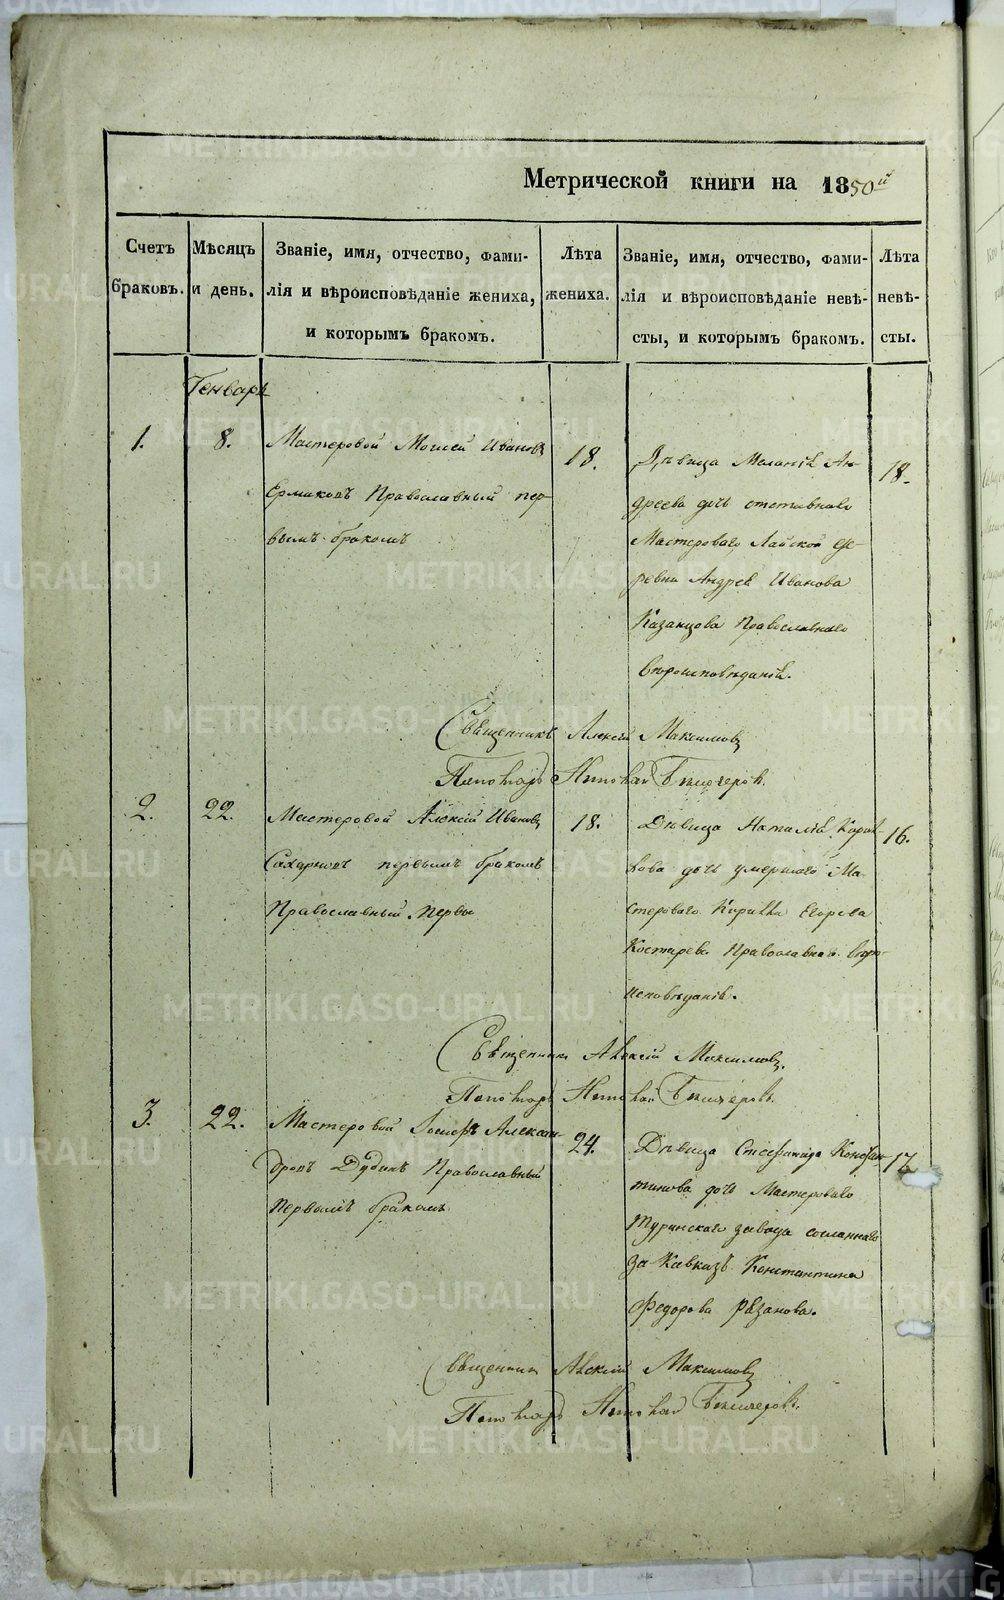 Метрической книги на 1850й
Счетъ браковъ.
Мѣсяцъ и день.
Званіе, имя, отчество, фами-
лія и вѣроисповѣданіе жениха,
и которымъ бракомъ.
Лѣта жениха.
Званіе, имя, отчество, фами-
лія и вѣроисповѣданіе невѣ-
сты, и которымъ бракомъ.
Лѣта невѣ-
сты.
Генварь
1.
8.
Мастеровой Моисей Ивановъ
Ермаковъ Православный пер-
вымъ бракомъ
18.
Дѣвица Меланія Ан-
дреева дочь отставнаго
Мастероваго Лайской де-
ревни Андрея Иванова
Казанцова Православнаго
вѣроисповѣданія.
18.
Священникъ Алексій Максимовъ
Пономарь
2.
22.
Мастеровой Алексій Ивановъ
первымъ бракомъ
Православный. Первы
18.
Дѣвица Наталія Кирил
лова дочь умершаго Ма-
стероваго Кирилла Егорова
Костарева Православнаго вѣро-
исповѣданія.
16.
Священникъ Алексій Максимовъ.
Пономарь
3.
22.
Мастеровой Іосифъ Алексан-
дровъ Дудинъ Православный
первымъ бракомъ.
24.
Дѣвица Стефанида Констан-
тинова дочь Мастероваго
Туринскаго завода сосланнаго
за Кавказъ Константина
Федорова Рѣзанова.
17.
Священникъ Алексій Максимовъ
Пономарь
METRIKI.GASO-URAL.RU